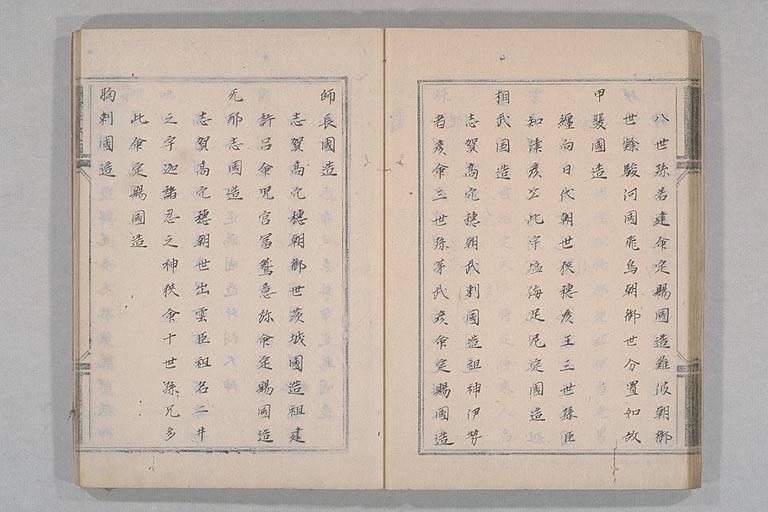 八世孫若建命定賜國造難波朝御
世隷駿河國飛鳥朝御世分置如故
甲斐國造
纏向日代朝世狹穗彦王三世孫臣
知津彦公此宇塩海足尼定國造
相武國造
志賀髙穴穗朝武刺國造祖神伊勢
都彦命三世孫弟武彦命定賜國造
師長國造
志賀髙穴穗朝御世茨城國造祖建
許呂命児宮冨鷲意弥命定賜國造
无邪志國造
志賀髙穴穗朝世出雲臣祖名二井
之宇迦諸忍之神狹命十世孫兄多
此命定賜國造
胸刺國造